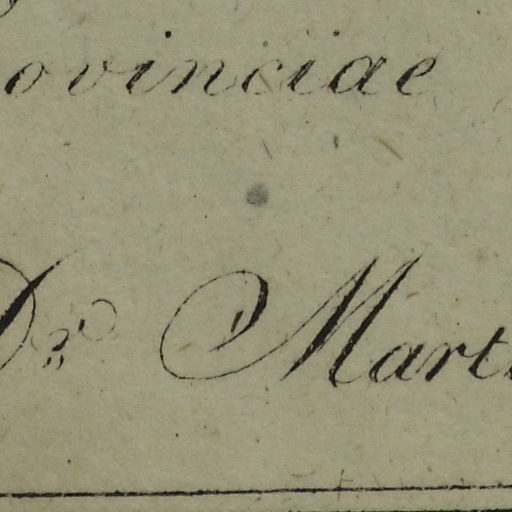 ovinciae
Dr. Mart